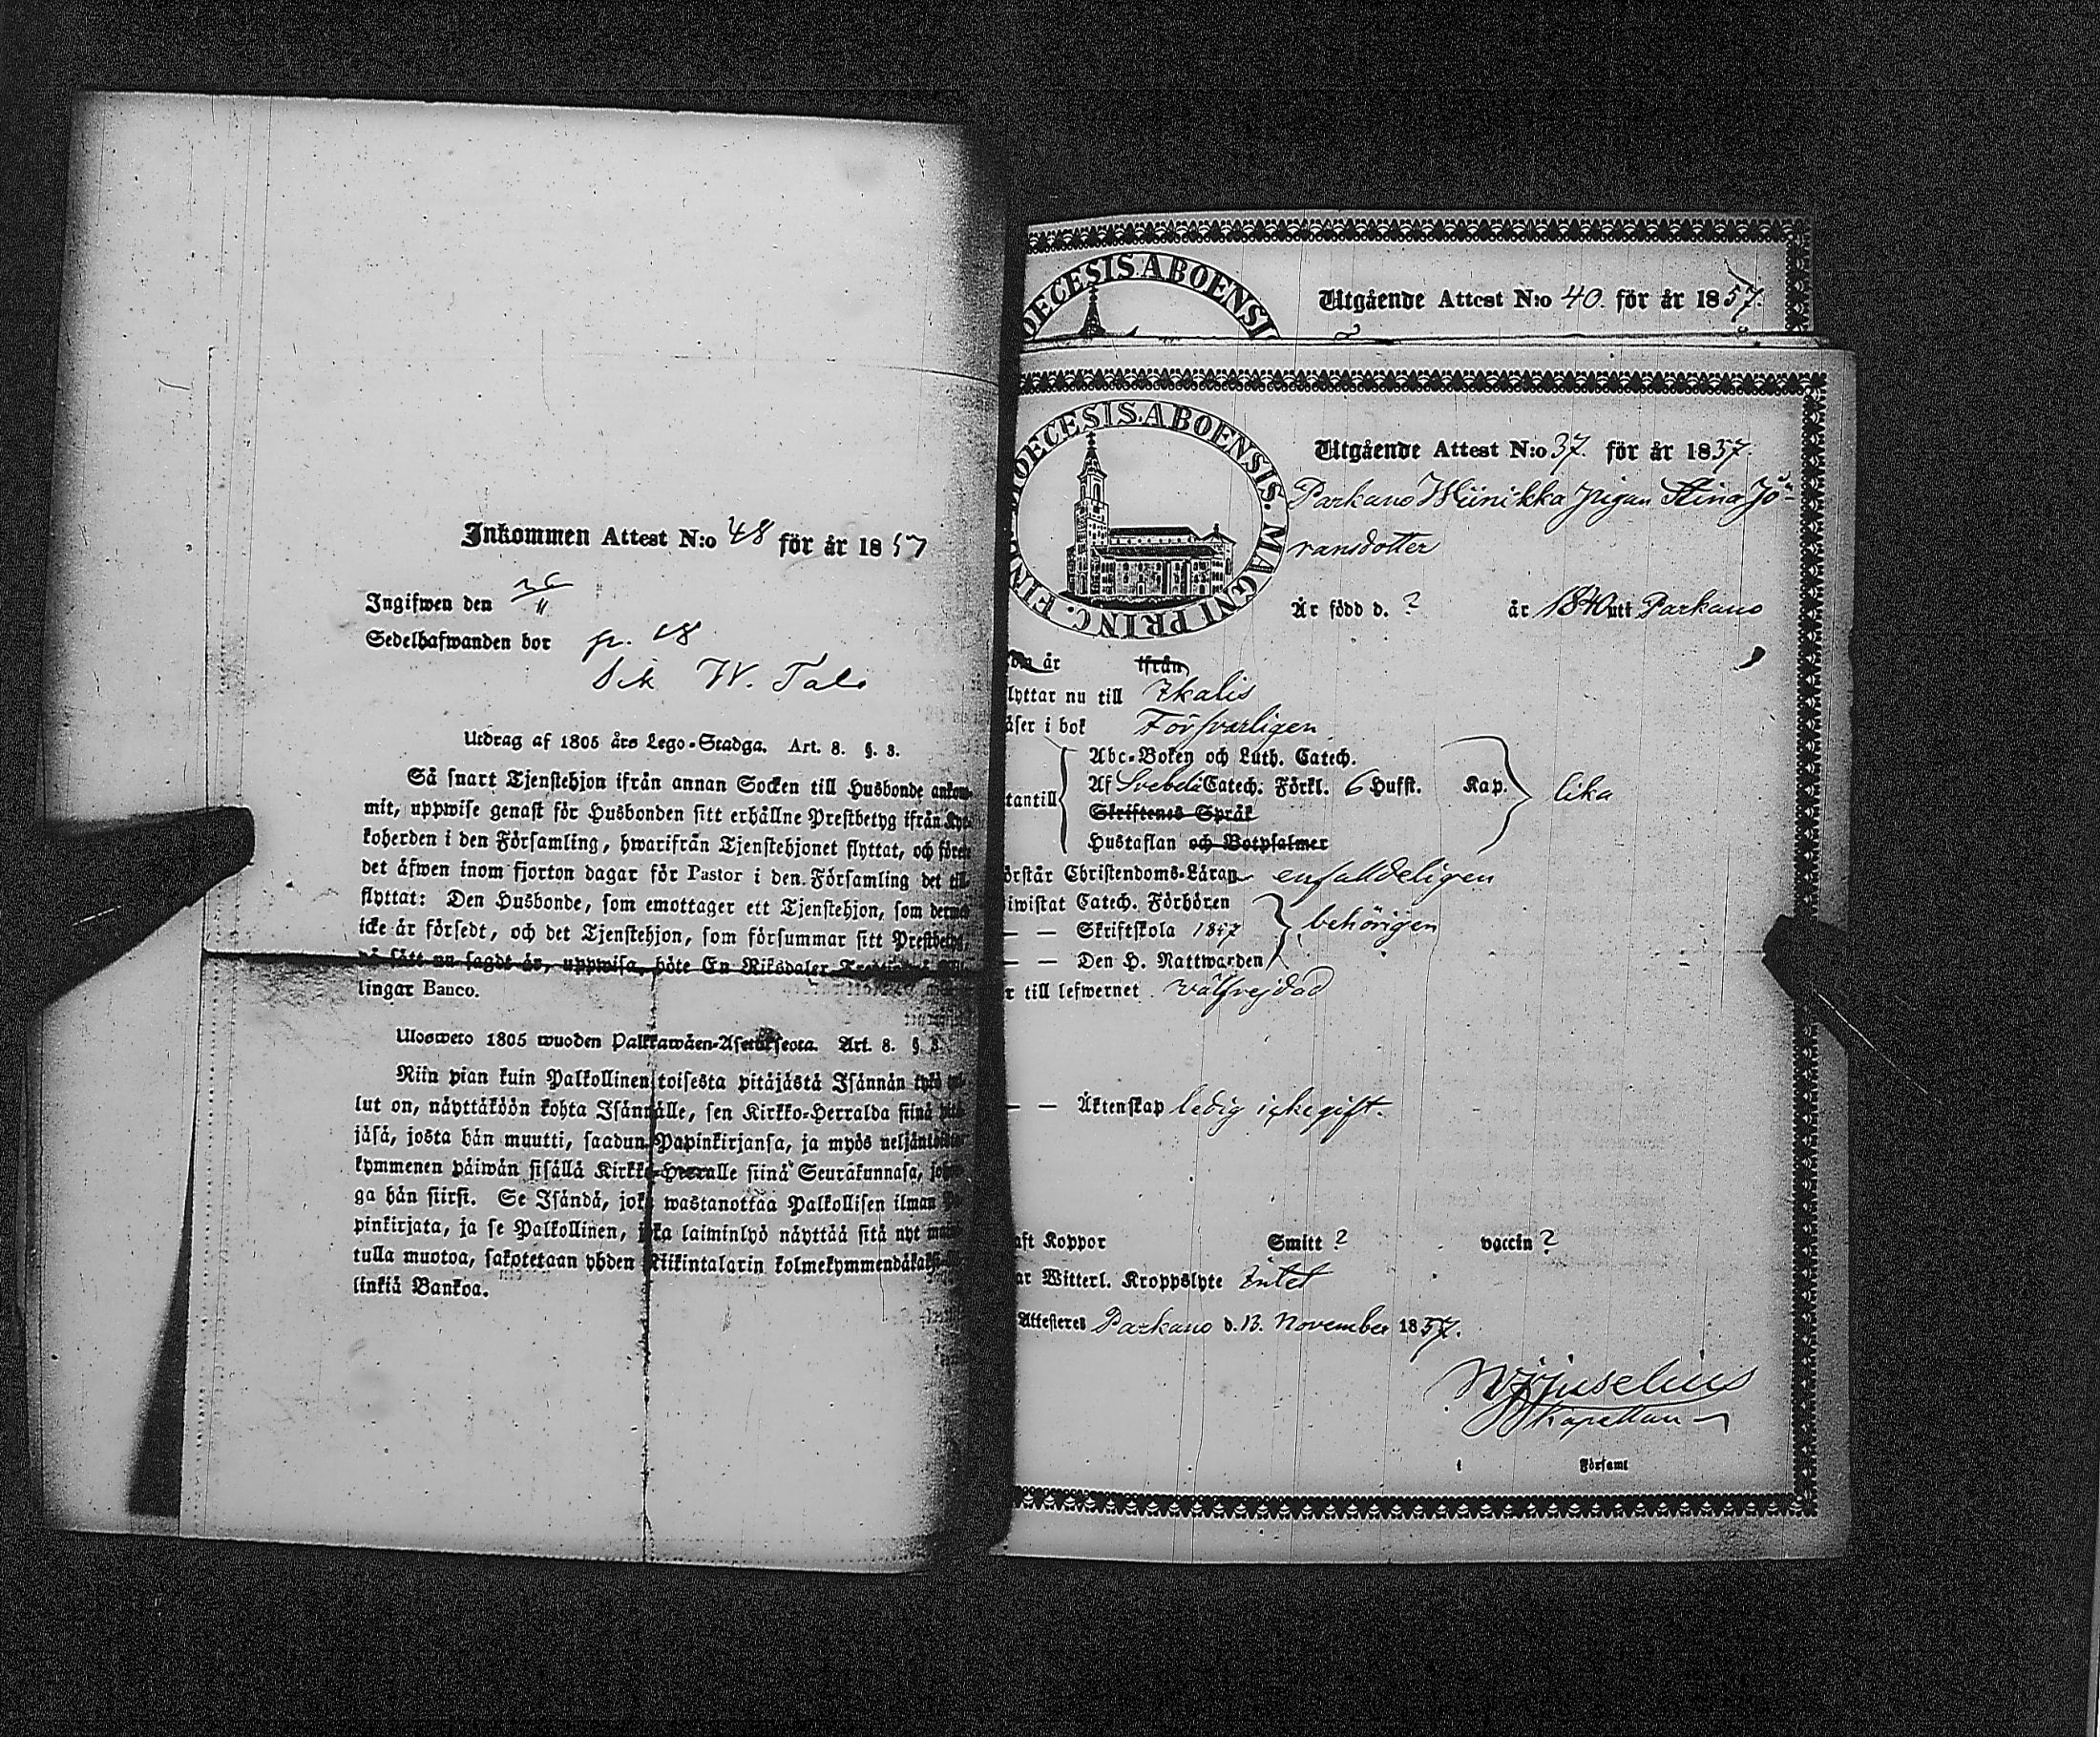 Inkommen Attest N:o 48 för år 1857
Ingifwen den 26/11
Sedelhafwanden bor p. 18
Sik W. Tal
Utdrag af 1805 års Lego-Stadga. Art. 8. §. 8.
Så snart Tjenstehjon ifrån annan Socken till Husbonde ankom-
mit, uppwise genast för Husbonden sitt erhållne Prestbetyg ifrån Kyr-
koherden i den Församling, hwarifrån Tjenstehjonet flyttat, och förete
det äfwen inom fjorton dagar för Pastor i den Församling det till
flyttat: Den Husbonde, som emottager ett Tjenstehjon, som dermed
icke är försedt, och det Tjenstehjon, som försummar sitt Prestbetyg,
på sätt nu sagdt är, uppwisa, böte En Riksdaler
lingar Banco.
Ulosweto 1805 wuoden Palkkawäen-Asetuksesta. Art. 8. § 8.
Niin pian kuin Palkollinen toisesta pitäjästä Isännän tykö
lut on, näyttäköön kohta Isännälle, sen Kirkko-Herralda siinä
jäsä, josta hän muutti, saadun Papinkirjansa, ja myös neljäntoista
kymmenen päiwän sisällä Kirkko-Herralle siinä Seurakunnasa,
ga hän siirsi. Se Isändä, joka wastanottaa Palkollisen ilman
pinkirjata, ja se Palkollinen, joka laiminlyö näyttää sitä nyt
tulla muotoa, sakotetaan yhden Riikintalarin kolmekymmendäkaksi
linkiä Bankoa.
DIOECESIS ABOENSIS
Utgående Attest N:o 40. för år 1857.
DIOECESIS ABOENSIS. MAGNI PRINC. FINL.
Utgående Attest N:o 37. för år 1857.
Parkano Wiinikka Pigan Stina Jö-
ransdotter
År född d. ? år 1840 uti Parkano
år ifrån
flyttar nu till Ikalis
läser i bok Försvarligen
Abc-Boken och Luth. Catech.
utantill Af Svebelii Catech. Förkl. 6 Hufst. Kap. lika
Skriftenes Språk
Hustaflan och Botpsalmer
örstår Christendoms-Läran enfalldeligen
iwistat Catech. Förhören
— — Skriftskola 1857 behörigen
— — Den H. Nattwarden
r till lefwernet välfrejdad
— — Äktenskap ledig icke gift.
aft Koppor Smitt ? vaccin ?
ar Witterl. Kroppslyte Intet
Attesteres Parkano d. 13. November 1857.
Juselius
Kapellan
i Församl